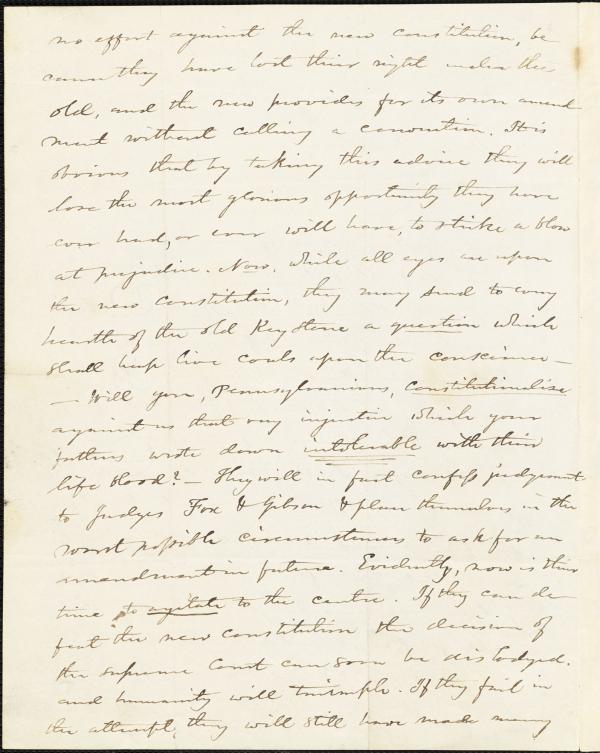 no effort against the new constitution, be
cause they have lost their right under the
old, and the new provides for its own amend
ment without calling a convention. It is
obvious that by taking this advice they will
lose the most glorious opportunity they have
ever had, or ever will have, to strike a blow
at prejudice. Now, while all eyes are upon
the new constitution, they may send to every
hearth of the old Key Stone a question which
shall heap live coals upon the conscience –
– Will you, Pennsylvanians, constitutionalise
against us that very injustice which your
fathers wrote down intolerable with their
life blood? – They will in fact confess judgement
to Judges Fox & Gibson & place themselves in the
worst possible circumstances to ask for an
amendment in future. Evidently, now is their
time to agitate to the centre. If they can de
feat the new constitution the decision of
the supreme Court can soon be dislodged.
and humanity will triumph. If they fail in
the attempt, they will still have made many